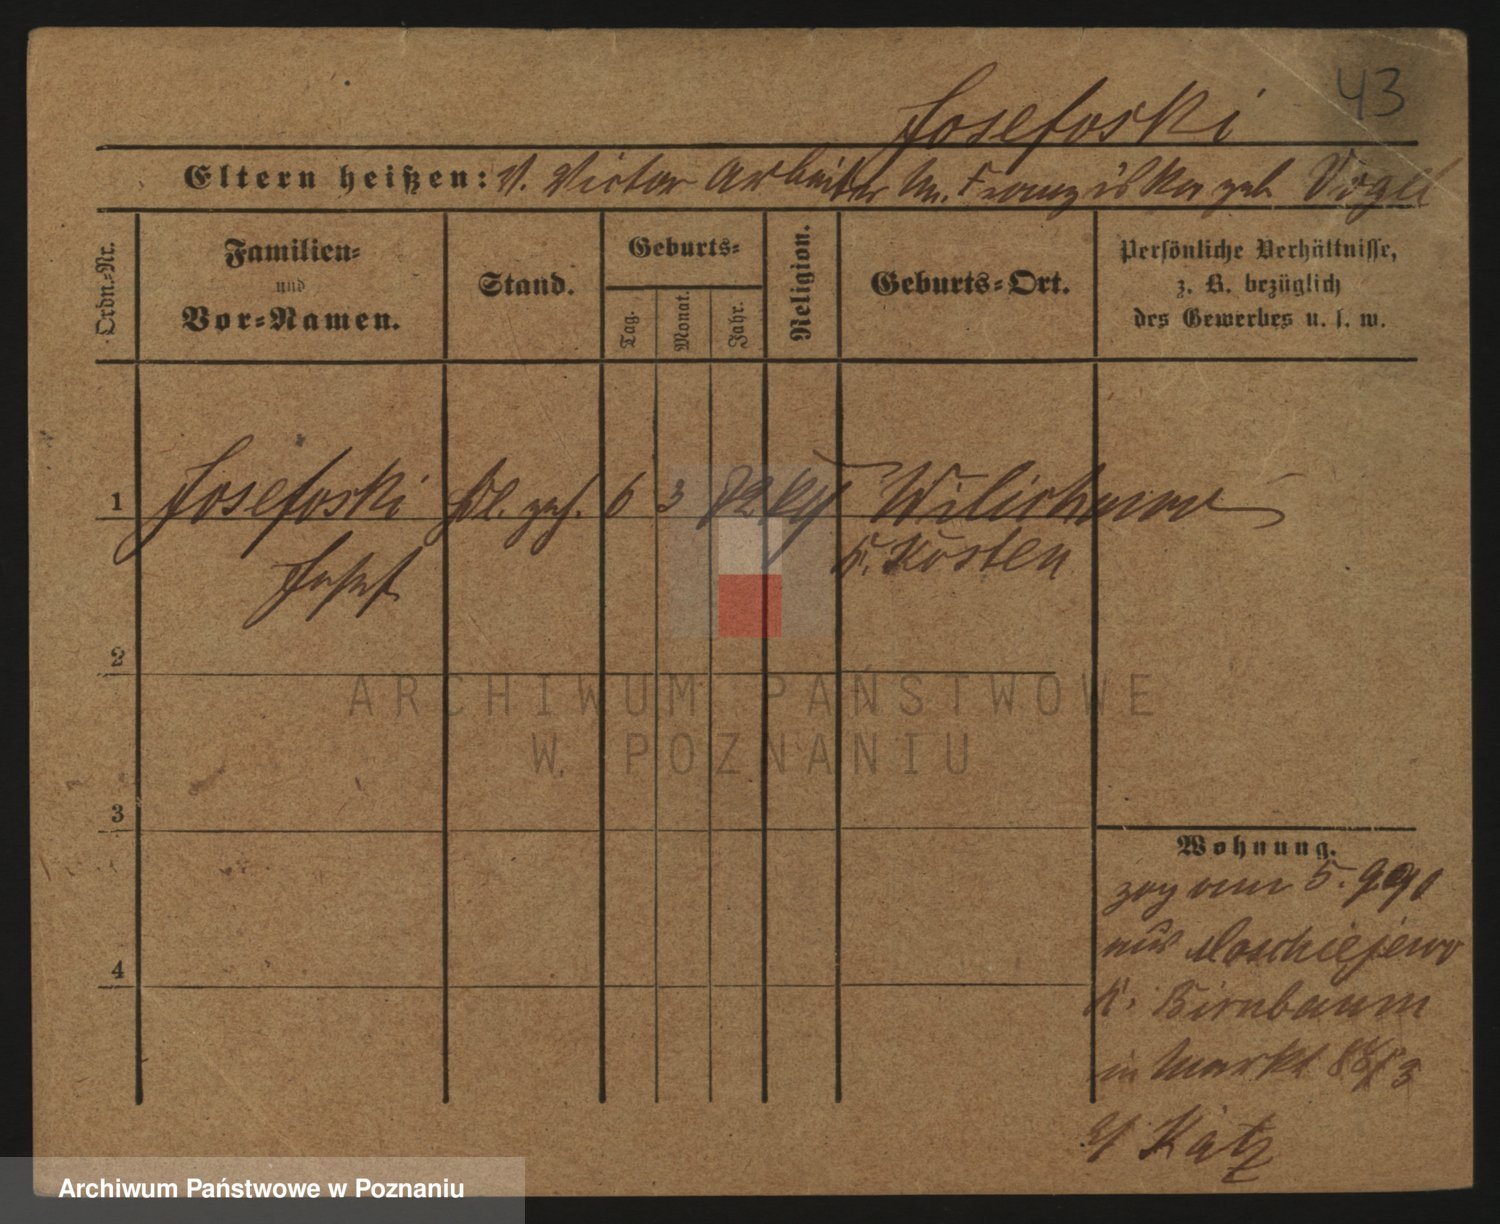 43
Josefoski
Eltern heißen: V. Victor Arbeiter M. Franziska geb
Ordn.-Nr.
Familien-
und
Vor-Namen.
Stand.
Geburts-
Tag.
Monat.
Jahr.
Religion.
Geburts-Ort.
Persönliche Verhältnisse,
z. B. bezüglich
des Gewerbes u. s. w.
1 Josefoski 6 3 72
Josef K. Kosten
2
3
4
Wohnung.
zog am 5. 9 90
aus
K. Birnbaum
in Markt
Katz
ARCHIWUM PAŃSTWOWE
W POZNANIU
Archiwum Państwowe w Poznaniu